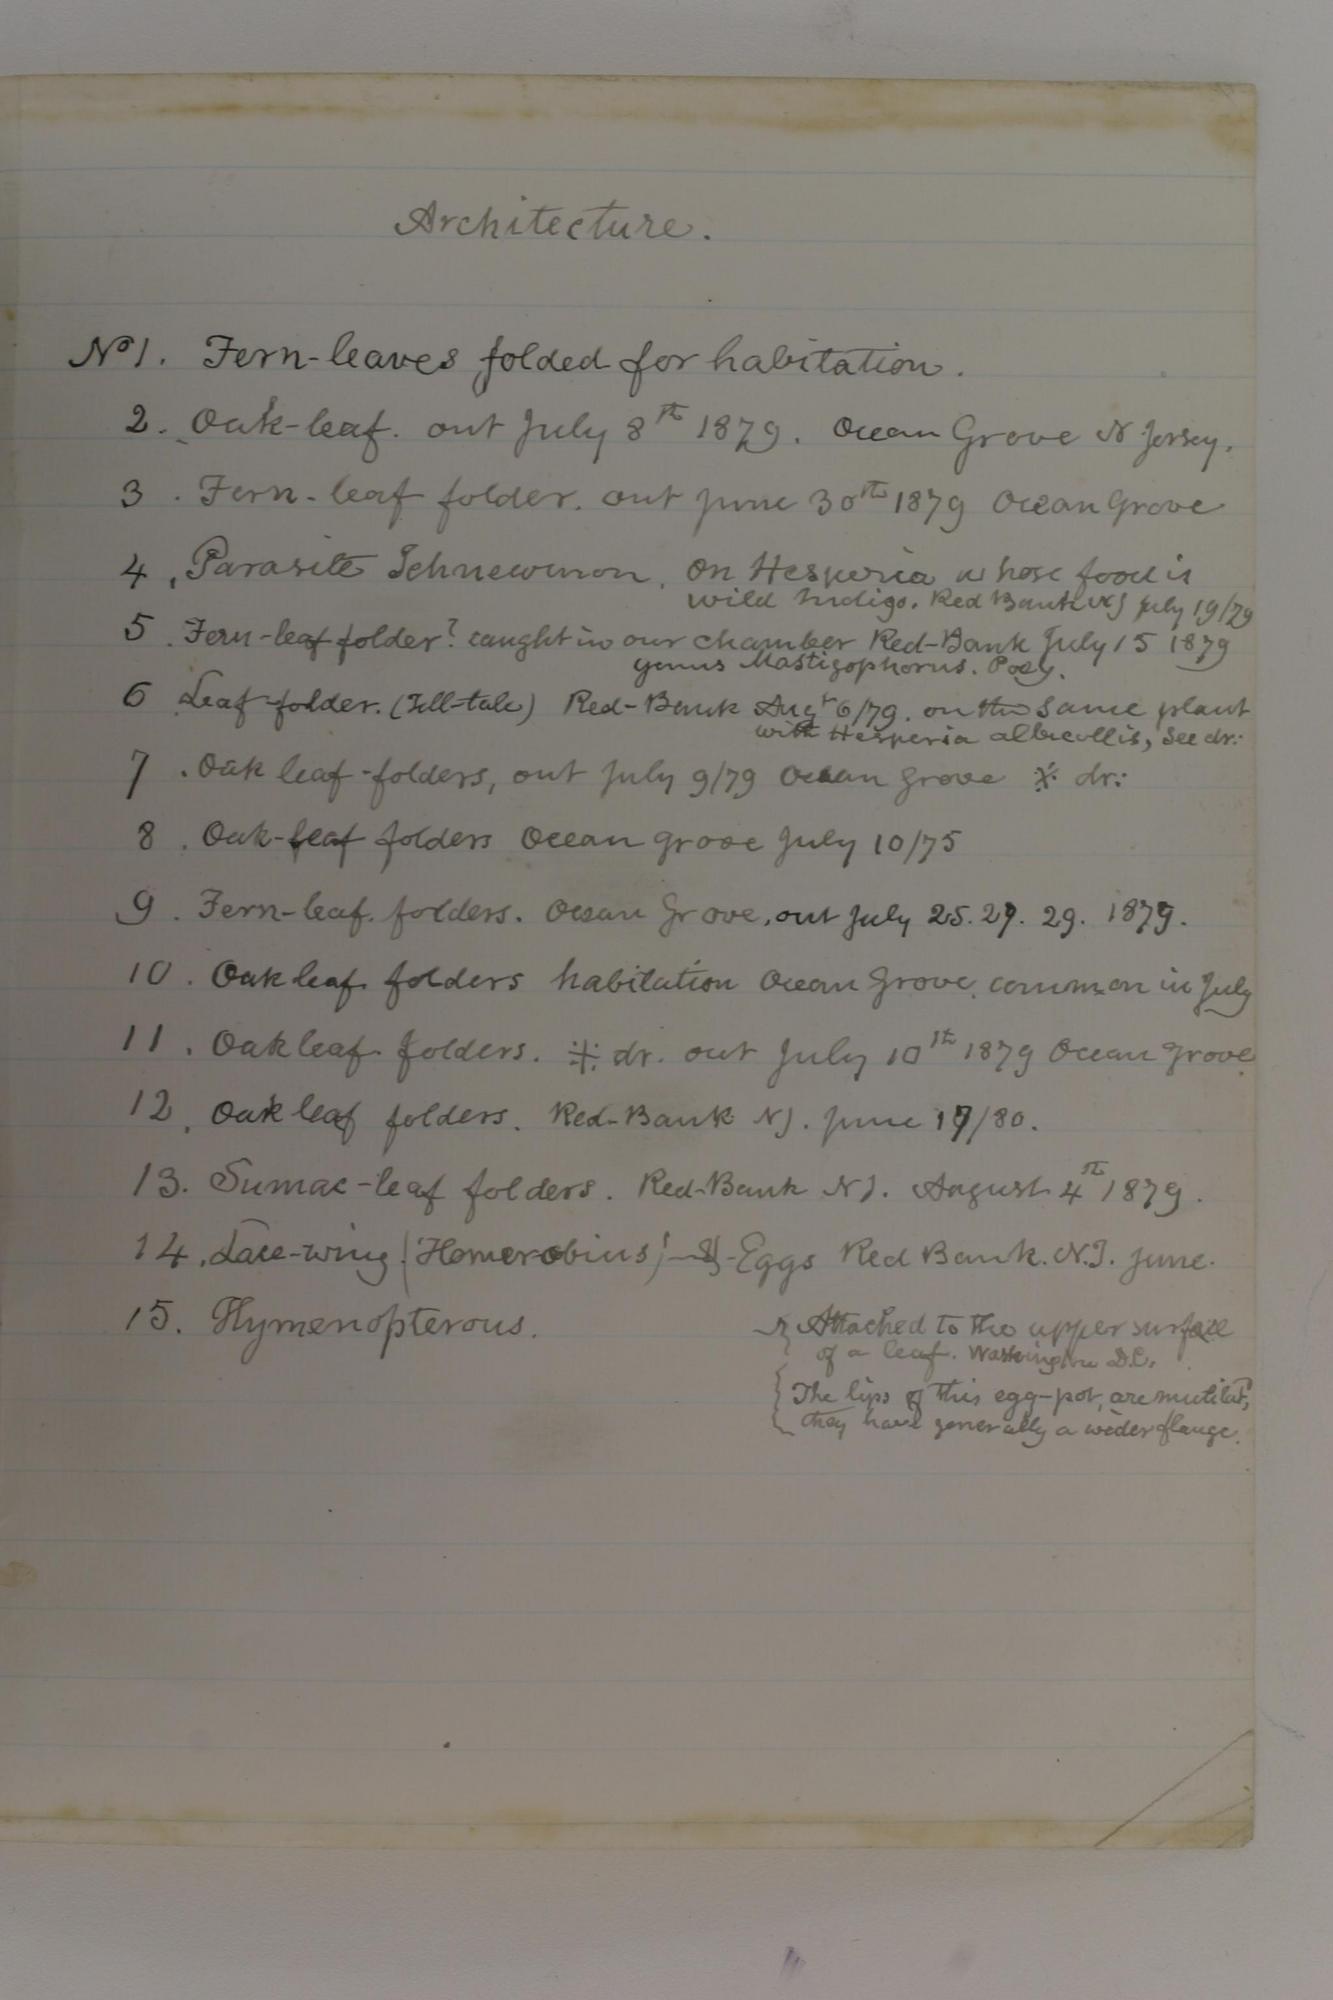 Architecture.
No 1. Fern-leaves folded for habitation.
2. Oak-leaf. out July 8th 1879. Ocean Grove N Jersey.
3. Fern-leaf folder. out June 30th 1879 Ocean Grove
4. Parasite Ichneumon. on Hesperia whose food is
wild indigo. Red Bank NJ July 19/79
5. Fern-leaf-folder? caught in our chamber Red-Bank July 15 1879
genus Mastigophorus. Poey.
6. Leaf-folder. (Tell-tale) Red-Bank Augt 6/79. on the same plant
with Hesperia see dr:
7. Oak leaf-folders, out July 9/79 Ocean Grove ※ dr:
8. Oak-leaf folders Ocean Grove July 10/75
9. Fern-leaf folders. Ocean Grove, out July 25. 27. 29. 1879.
10. Oak leaf folders habitation Ocean Grove. common in July
11. Oak leaf folders. ※ dr. out July 10th 1879 Ocean Grove.
12. Oak leaf folders. Red-Bank NJ. June 17/80.
13. Sumac-leaf folders. Red-Bank NJ. August 4th 1879.
14. Lace-wing (Hemerobius) Eggs Red Bank. N.J. June.
15. Hymenopterous. { Attached to the upper surface
of a leaf. Washington D.C.
{ The lips of this egg-pot, are mutilated,
{ they have generally a wider flange.